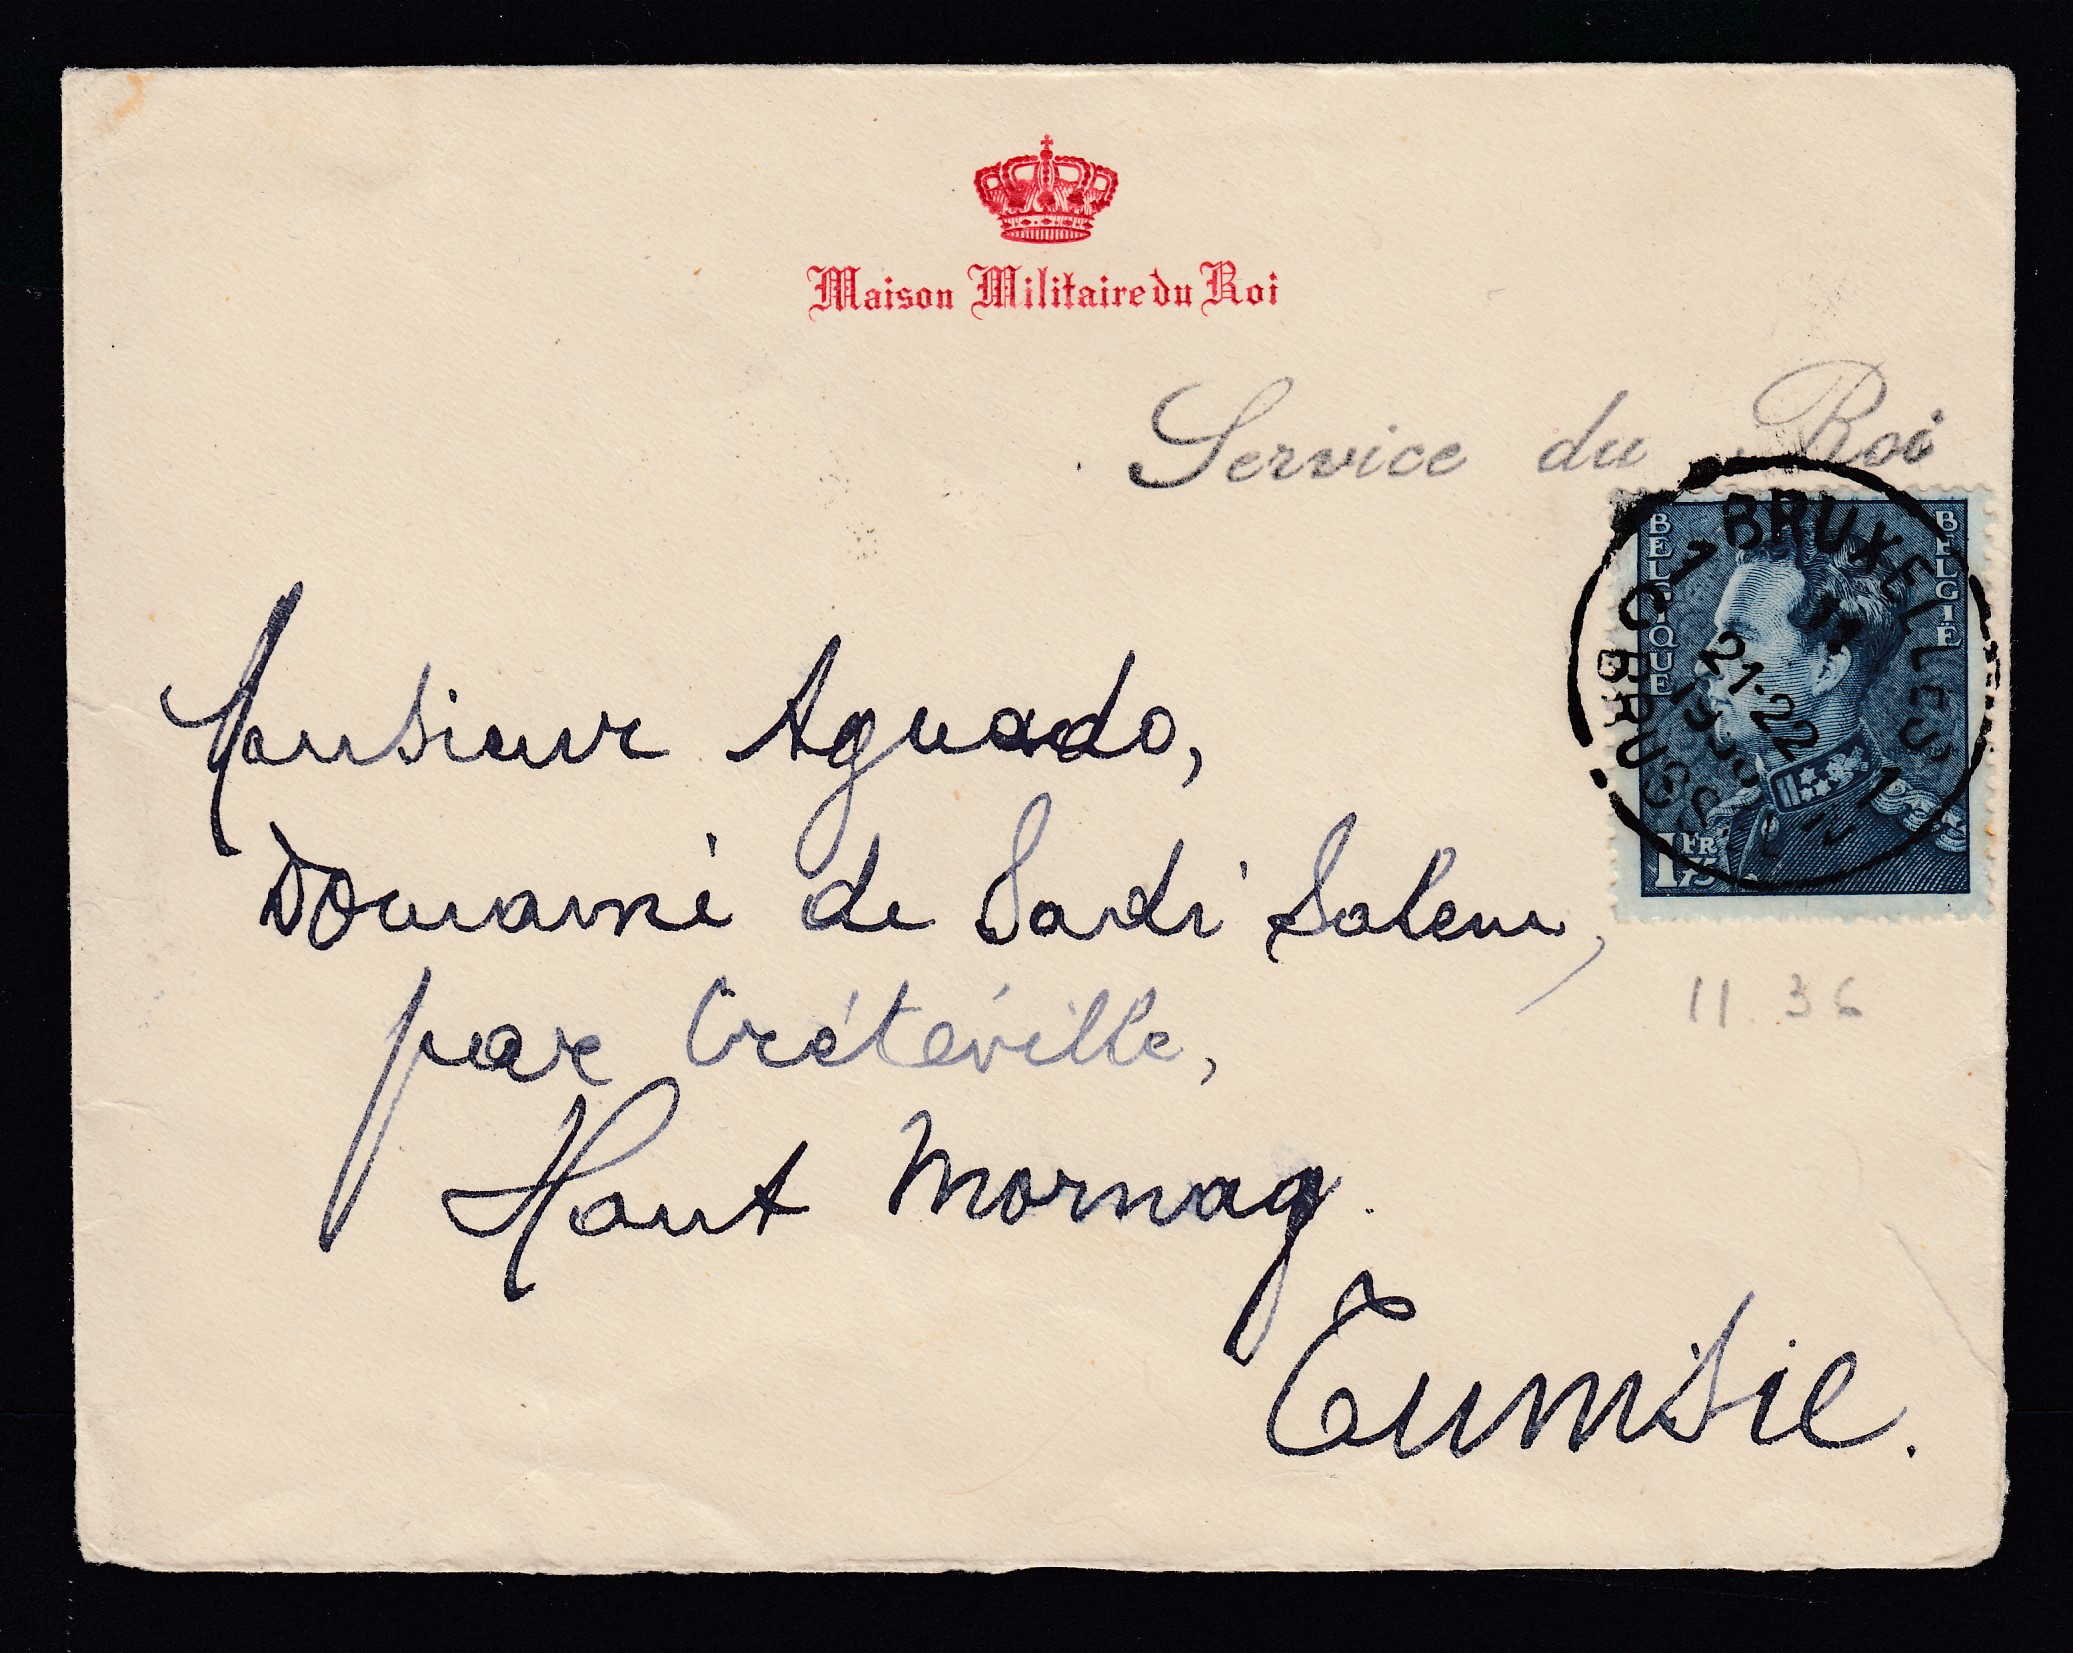 Maison Militaire du Roi
Service du Roi
BELGIQUE
BELGIË
1 FR 75
BRUXELLES
BRUSSEL
1 C
11
21-22
1
Monsieur Aguado,
Domaine de Sardi Salem,
par Crétéville,
11.36
Haut Mornag.
Tunisie.